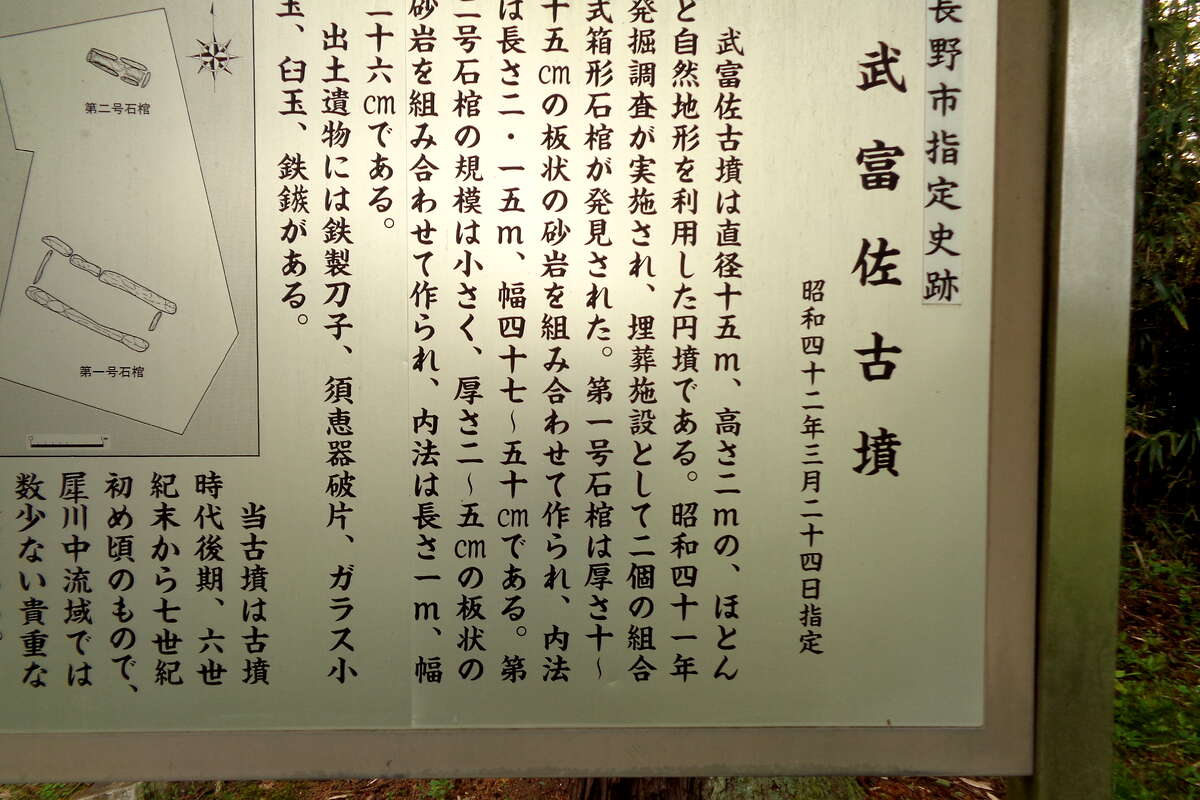 長野市指定史跡
武富佐古墳
昭和四十二年三月二十四日指定
武富佐古墳は直径十五m、高さ二mの、ほとん
と自然地形を利用した円墳である。昭和四十一年
発掘調査が実施され、埋葬施設として二個の組合
式箱形石棺が発見された。第一号石棺は厚さ十～
十五cmの板状の砂岩を組み合わせて作られ、内法
は長さ二・一五m、幅四十七～五十cmである。第
二号石棺の規模は小さく、厚さ二～五cmの板状の
砂岩を組み合わせて作られ、内法は長さ一m、幅
二十六cmである。
出土遺物には鉄製刀子、須恵器破片、ガラス小
玉、臼玉、鉄鏃がある。
第二号石棺
第一号石棺
当古墳は古墳
時代後期、六世
紀末から七世紀
初め頃のもので、
犀川中流域では
数少ない貴重な